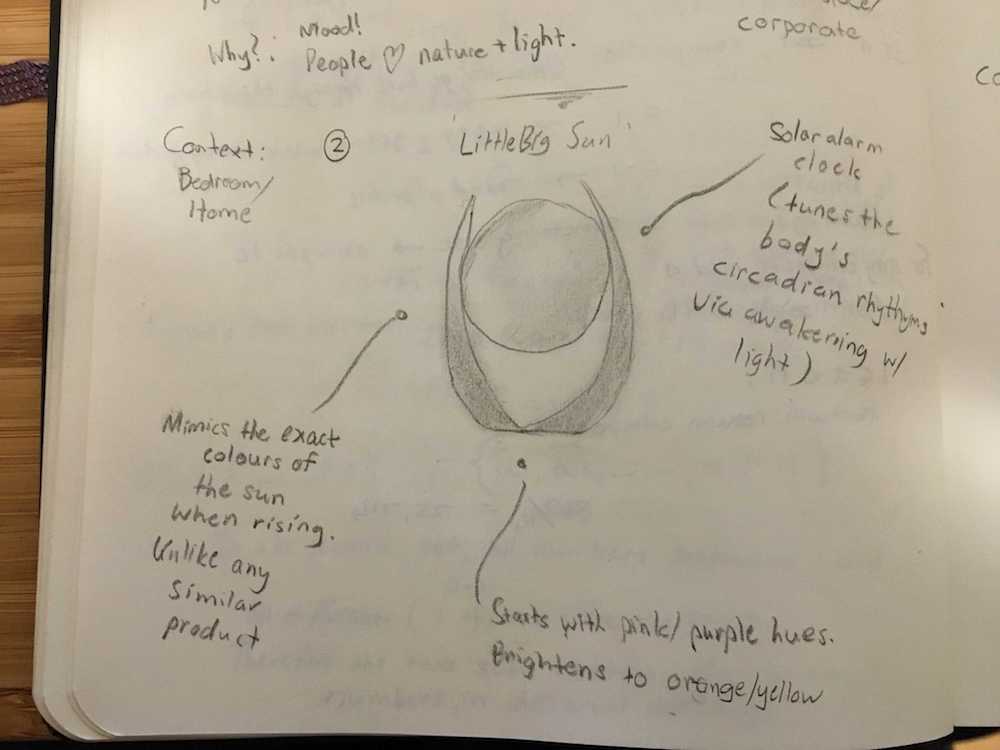 Mood!
Why?: People ♡ nature + light.
corporate
Context:
Bedroom/
Home
②
'LittleBig Sun'
Solar alarm
clock
(tunes the
body's
circadian rhythyms
via awakening w/
light)
Mimics the exact
colours of
the sun
when rising.
Unlike any
similar
product
Starts with pink/purple hues.
Brightens to orange/yellow